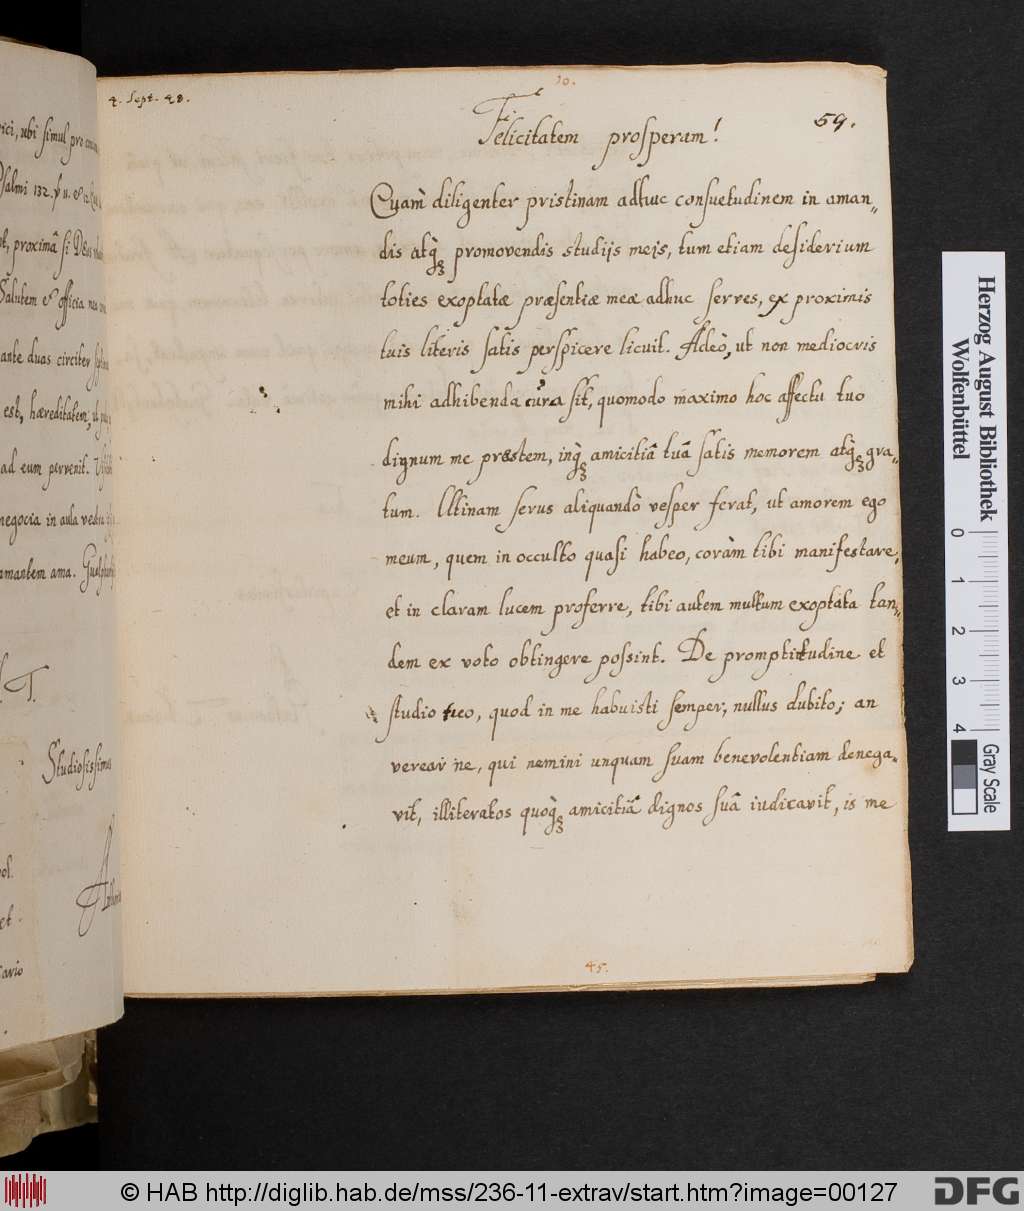 rici, ubi simul pro
Psalmi 132. ℣ 11. &
proximâ si DEus
Salutem & officia mea
ante duas circiter
est, hæreditatem,
ad eum pervenit.
negocia in aula vestra
amantem ama.
T.
Studiosissimus
10.
4. Sept. 48.
59.
Felicitatem prosperam!
Quàm diligenter pristinam adhuc consuetudinem in aman„
dis atq́ꝫ promovendis studijs meis, tum etiam desiderium
toties exoptatæ præsentiæ meæ adhuc serves, ex proximis
tuis literis satis perspicere licuit. Adeò, ut non mediocris
mihi adhibenda cura sit, quomodo maximo hoc affectu tuo
dignum me præstem, inq́ꝫ amicitiâ tuâ satis memorem atq́ꝫ gra„
tum. Utinam serus aliquandò vesper ferat, ut amorem ego
meum, quem in occulto quasi habeo, coràm tibi manifestare,
et in claram lucem proferre, tibi autem multum exoptata tan„
dem ex voto obtingere possint. De promptitudine et
studio tuo, quod in me habuisti semper, nullus dubito; an
verear ne, qui nemini unquam suam benevolentiam denega„
vit, illiteratos quoq́ꝫ amicitiâ dignos suâ iudicavit, is me
45.
Herzog August Bibliothek
Wolfenbüttel
0 1 2 3 4
Gray Scale
© HAB http://diglib.hab.de/mss/236-11-extrav/start.htm?image=00127
DFG